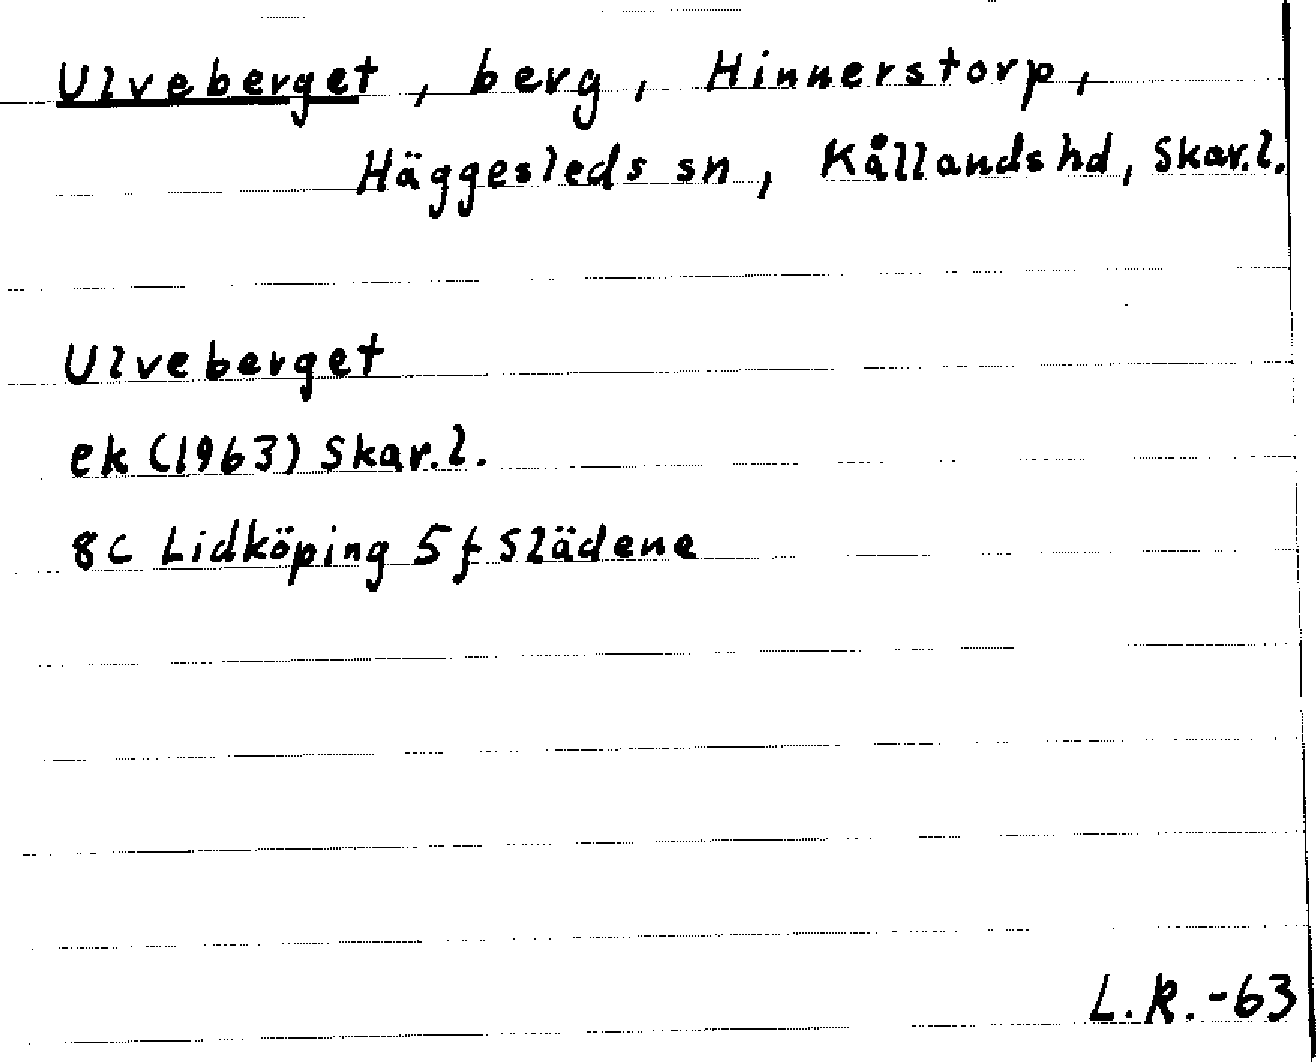 Ulveberget, berg, Hinnerstorp,
Häggesleds sn, Kållands hd, Skar.l.
Ulveberget
ek (1963) Skar.l.
8c Lidköping 5f Slädene
L.R.-63